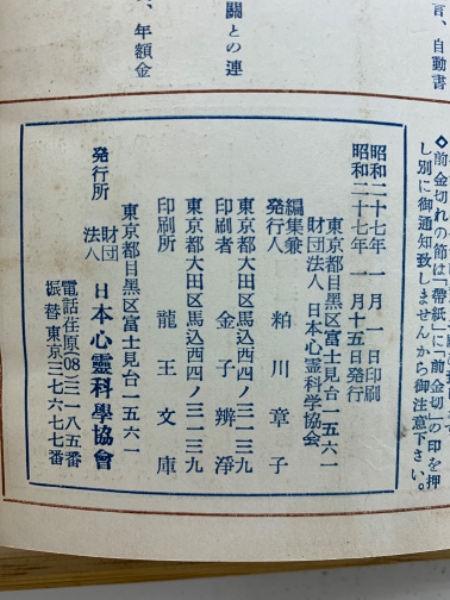 言、自動書
關との連
、年額金
◇前金切れの節は「帶紙」に「前金切」の印を押
し別に御通知致しませんから御注意下さい。
昭和二十七年一月一日印刷
昭和二十七年一月十五日発行
東京都目黒区富士見台一五六一
財団法人 日本心霊科学協会
編集兼
発行人 粕川章子
東京都大田区馬込西四ノ三一三九
印刷者 金子辨淨
東京都大田区馬込西四ノ三一三九
印刷所 龍王文庫
東京都目黒区富士見台一五六一
発行所 財団法人 日本心靈科學協會
電話荏原(08)三一八五番
振替東京三七六七七番